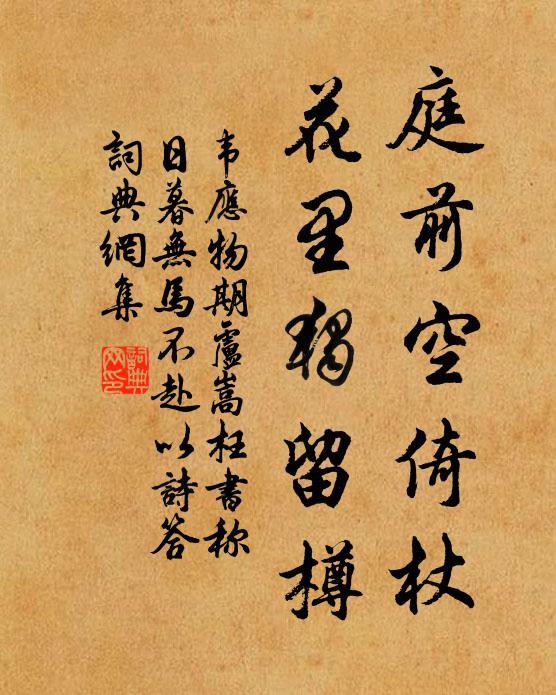 庭前空倚杖
花里独留樽
韦應物期盧嵩枉書称
日暮無馬不赴以詩答
詞典網集
詞典网印